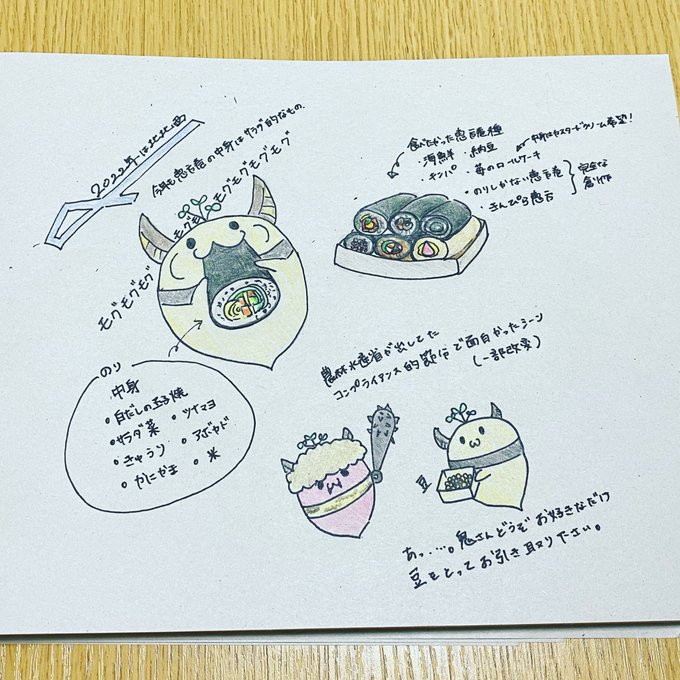 2022年は北北西
今年も恵方巻の中身はサラダ的なもの。
モグモグモグモグ
モグモグモグ
のり
中身
・白だしの玉子焼
・サラダ菜
・きゅうり
・かにかま
・ツナマヨ
・アボカド
・米
食べたかった恵方巻種
・海鮮
・納豆
・キンパ
・苺のロールケーキ
中身はカスタードクリーム希望!
・のりしかない恵方巻
・きんぴら恵方
完全な
創作
農林水産省が出してた
コンプライアンス的節分で面白かったシーン
(一部改変)
豆
あっ…。鬼さんどうぞお好きなだけ
豆をとってお引き取り下さい。